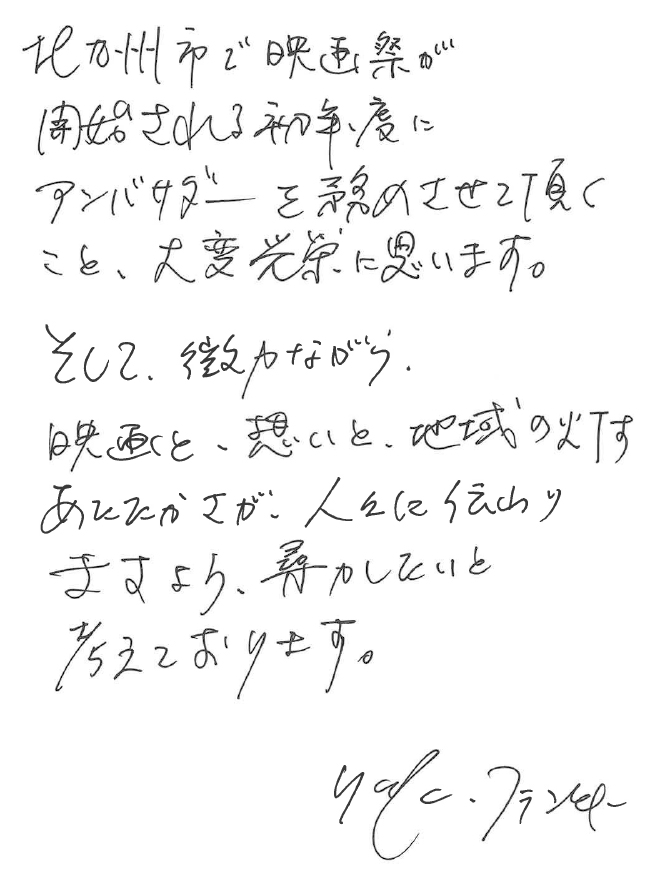 北九州市で映画祭が
開始される初年度に
アンバサダーを務めさせて頂く
こと、大変光栄に思います。
そして、微力ながら、
映画と、想いと、地域の灯す
あたたかさが、人々に伝わり
ますよう、尽力したいと
考えております。
リリー・フランキー